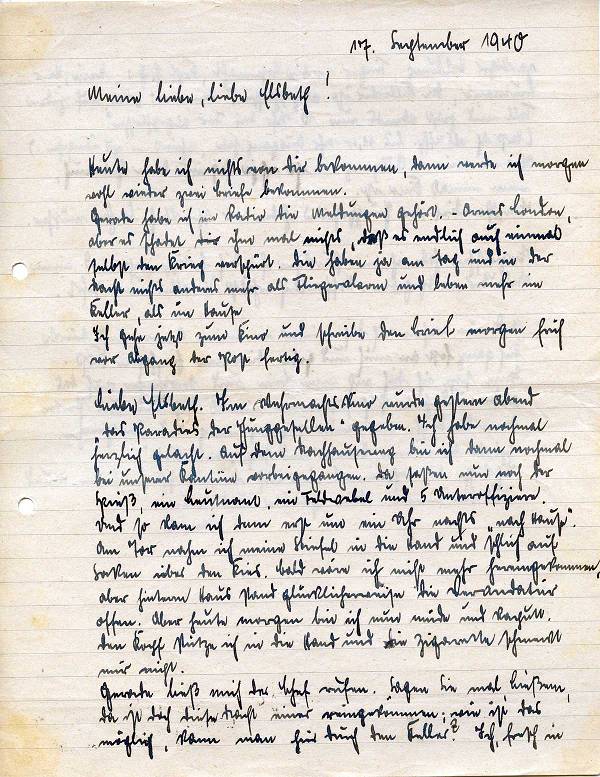 17. September 1940
Meine liebe, liebe Elsbeth!
Heute habe ich nichts von dir bekommen, dann werde ich morgen
wohl wieder zwei Briefe bekommen.
Gerade habe ich im Radio die Meldungen gehört. - Armes London,
aber es schadet ihm mal nichts, daß es endlich auch einmal
selbst den Krieg verspürt. Die haben ja am Tag und in der
Nacht nichts anderes mehr als Fliegeralarm und leben mehr im
Keller, als im Hause.
Ich gehe jetzt zum Kino und schreibe den Brief morgen früh
vor Abgang der Post fertig.
Liebe Elsbeth. Im Wehrmachtskino wurde gestern abend
"das Paradies der Junggesellen" gegeben. Ich habe nochmal
herzlich gelacht. Auf dem Nachhauseweg bin ich dann nochmal
bei unserer Kantine vorbeigegangen. Da saßen nun noch der
Spieß, ein Leutnant, ein Feldwebel und 5 Unteroffiziere.
Und so kam ich denn erst um ein Uhr nachts "nach Hause".
Am Tor nahm ich meine Stiefel in die Hand und schlich auf
Socken über den Kies. Bald wäre ich nicht mehr hereingekommen,
aber hinterm Haus stand glücklicherweise die Verandatür
offen. Aber heute morgen bin ich nun müde und kaputt.
Den Kopf stütze ich in die Hand und die Zigarette schmeckt
mir nicht.
Gerade ließ mich der Chef rufen. Sagen Sie mal,
da ist doch diese Nacht einer reingekommen, wie ist das
möglich, kann man hier durch den Keller? Ich, frech in